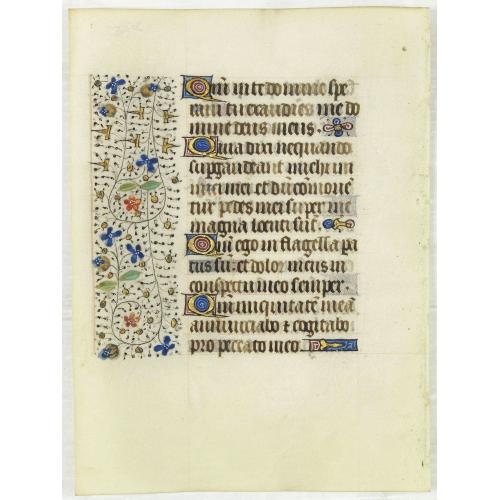 Qm̄ in te domine spe
raui tu exaudies me do
mine deus meus.
Quia dixi nequando
supgaudeant michi ini
mici mei et dū cōmoue
tur pedes mei super me
magna locuti sūt.
Qm̄ ego in flagella pa
ratus sū. et dolor meus in
conspectu meo semper.
Qm̄ iniquitatē meā
annunciabo ⁊ cogitabo
pro peccato meo